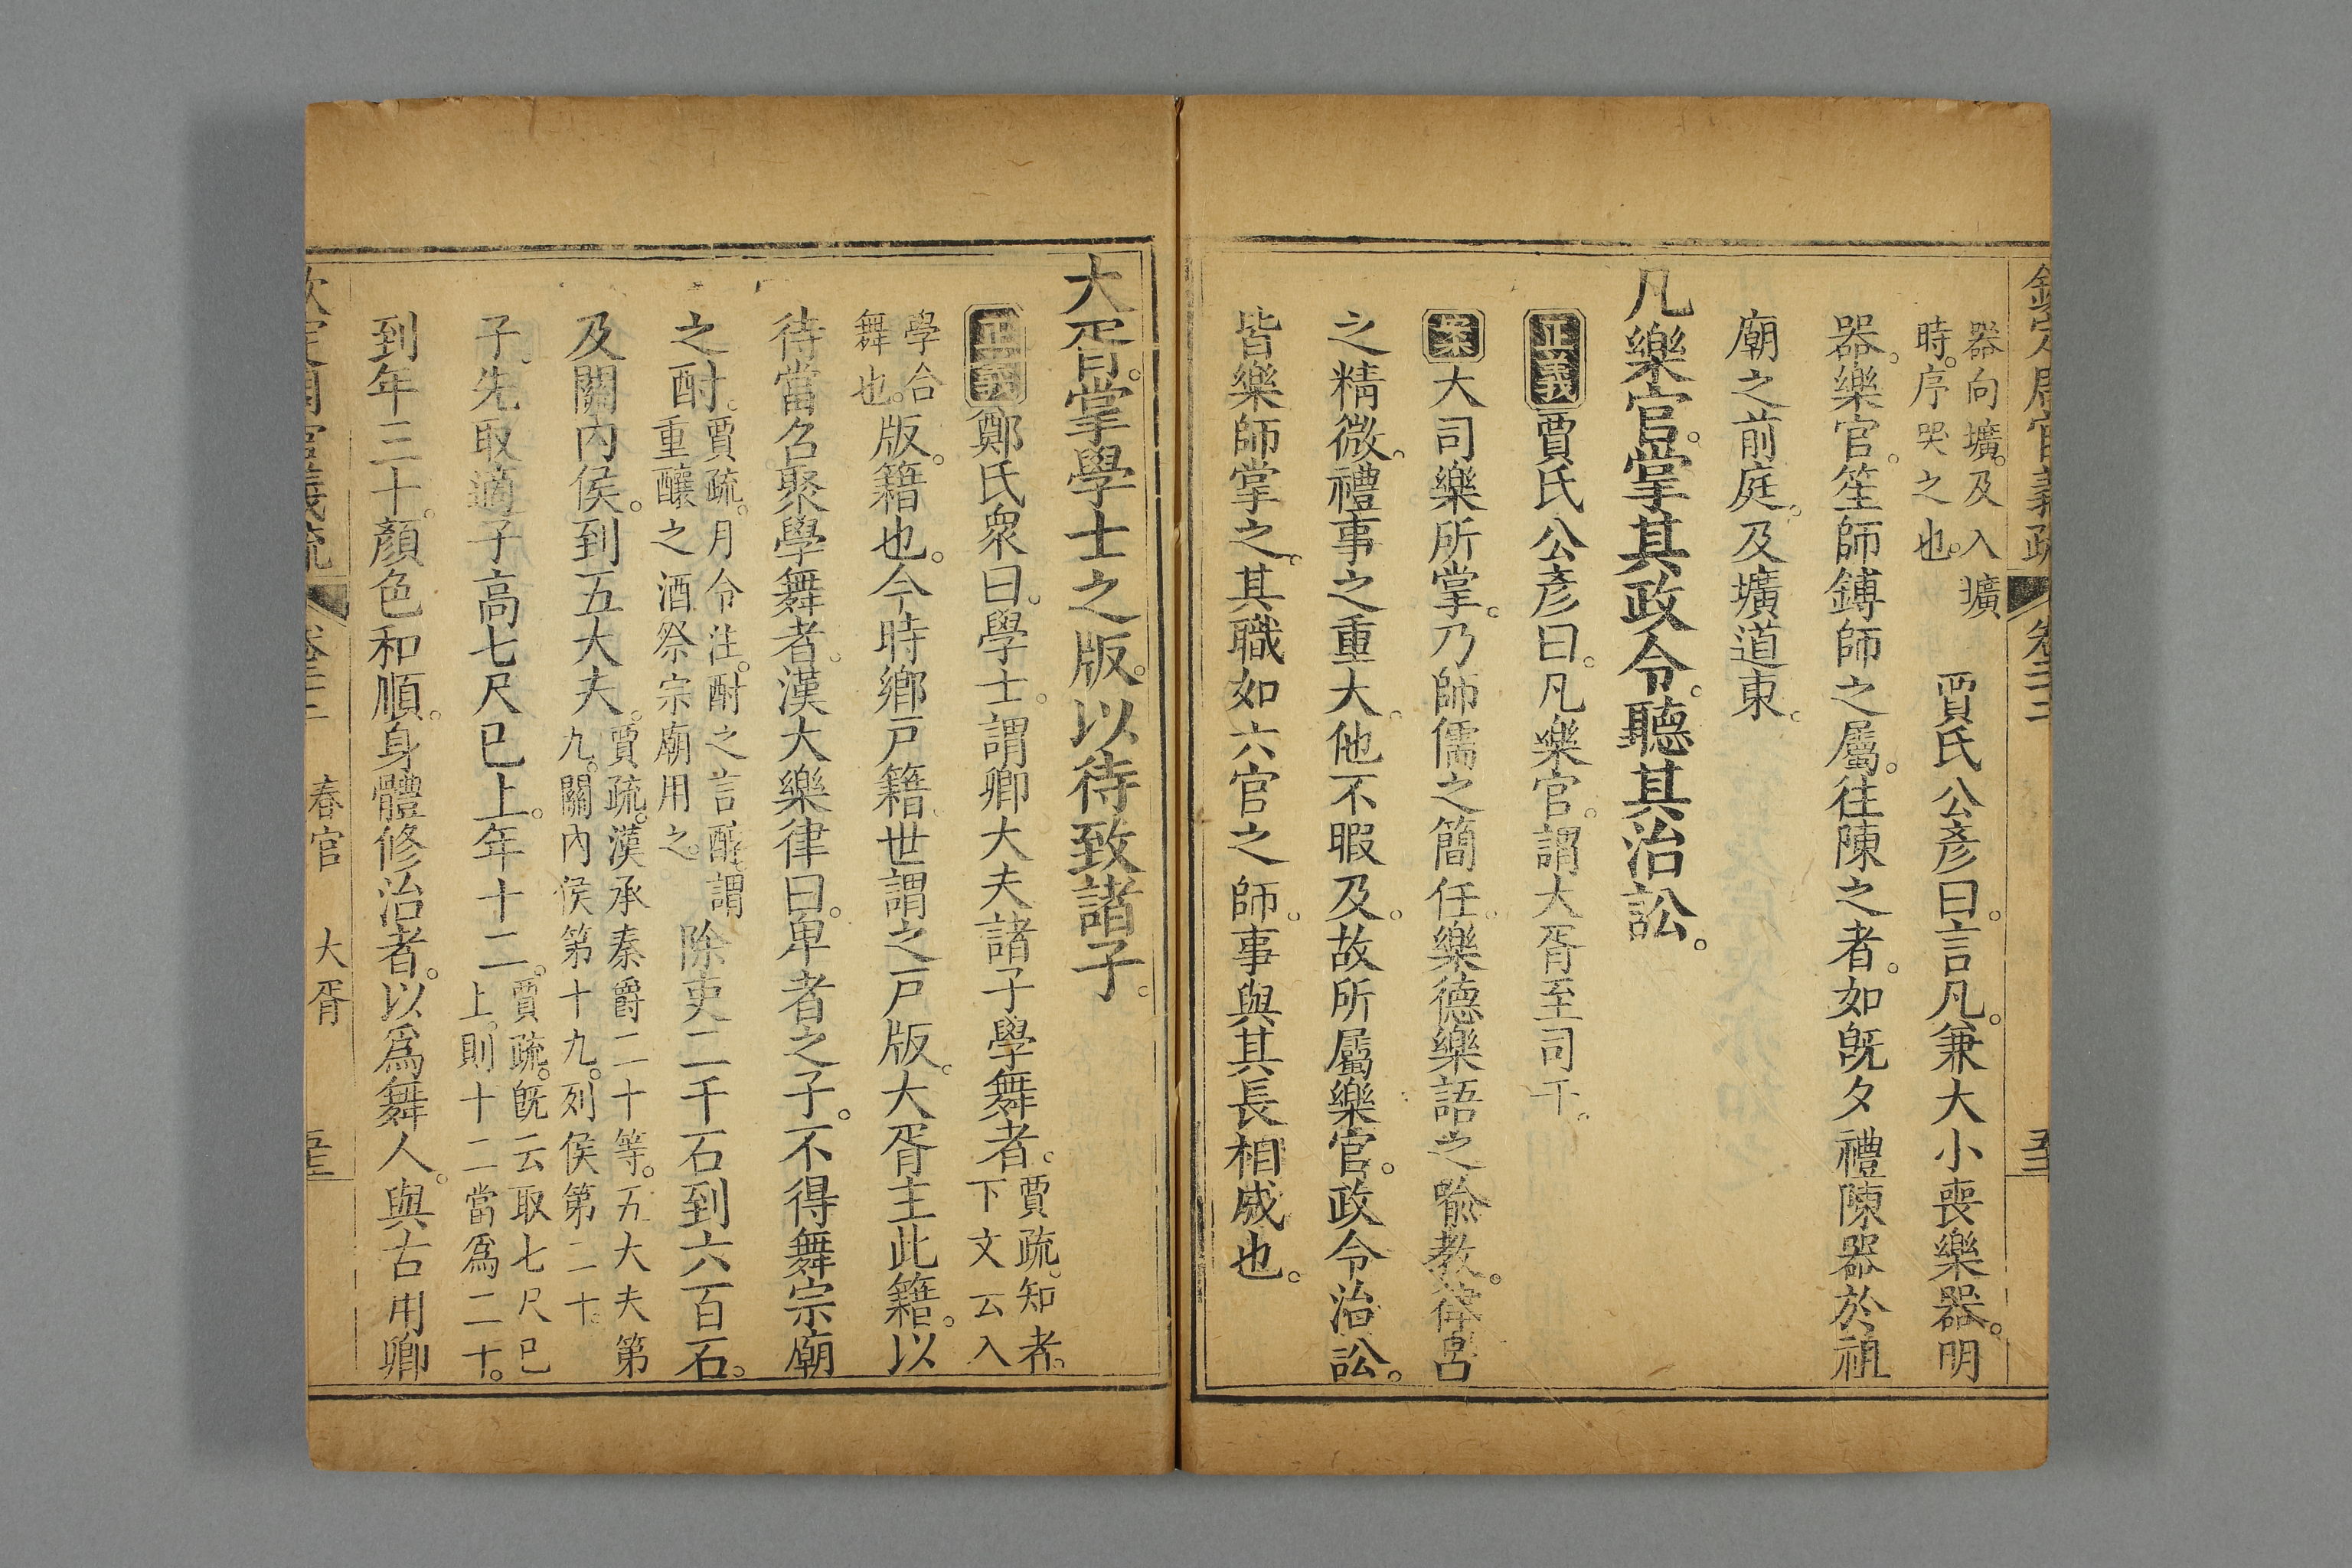 欽定周官義疏 卷二十二 五十三
器向壙及入壙
時。序哭之也。
賈氏公彥曰。言凡。兼大小喪樂器。明
器。樂官。笙師鏄師之屬。往陳之者。如旣夕禮陳器於祖
廟之前庭。及壙道東。
凡樂官。掌其政令。聽其治訟。
正義賈氏公彥曰。凡樂官。謂大胥至司干。
案大司樂所掌。乃師儒之簡任。樂德樂語之喻教。律呂
之精微。禮事之重大。他不暇及。故所屬樂官。政令治訟。
皆樂師掌之。其職如六官之師。事與其長相成也。
大胥。掌學士之版。以待致諸子。
正義鄭氏衆曰。學士。謂卿大夫諸子學舞者。
賈疏。知者。
下文云入
學合
舞也。
版。籍也。今時鄉戸籍。世謂之戸版。大胥主此籍。以
待當召聚學舞者。漢大樂律曰。卑者之子。不得舞宗廟
之酎。
賈疏。月令注。酎之言醇。謂
重釀之酒。祭宗廟用之。
除吏二千石到六百石。
及關內侯。到五大夫。
賈疏。漢承秦爵二十等。五大夫第
九。關內侯第十九。列侯第二十。
子。先取適子高七尺已上。年十二。
賈疏。旣云取七尺已
上。則十二當爲二十。
到年三十。顏色和順。身體修治者。以爲舞人。與古用卿
欽定周官義疏 春官 大胥